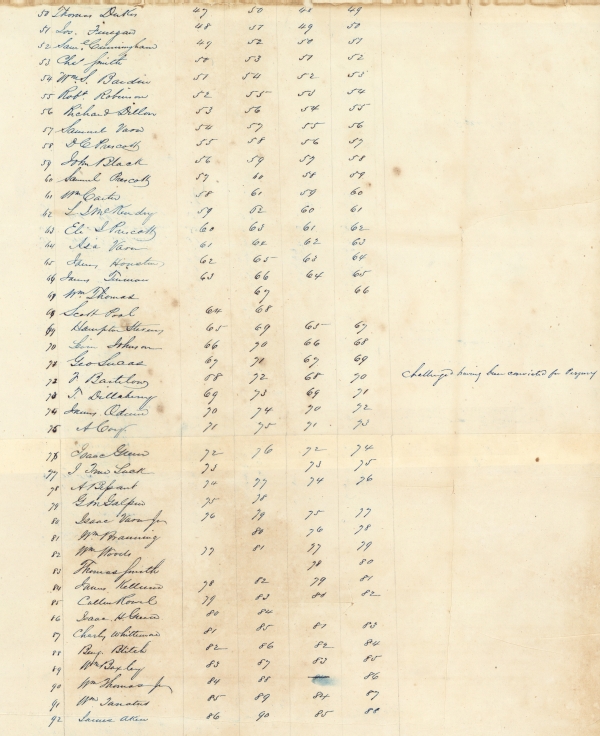 50 Thomas Dukes 47 50 48 49
51 Jos. Finegan 48 51 49 50
52 Saml Cunningham 49 52 50 51
53 Chs Smith 50 53 51 52
54 Wm S. Bardin 51 54 52 53
55 Robt Robinson 52 55 53 54
56 Richard Dillon 53 56 54 55
57 Samuel Varn 54 57 55 56
58 D C Prescott 55 58 56 57
59 John Black 56 59 57 58
60 Samuel Prescott 57 60 58 59
61 Wm Carter 58 61 59 60
62 McKendry 59 62 60 61
63 Eli S Prescott 60 63 61 62
64 Asa Varn 61 64 62 63
65 James Houston 62 65 63 64
66 James Turman 63 66 64 65
Wm Thomas 67 66
68 Scott Pool 64 68
69 Hampton 65 69 65 67
70 Levi Johnson 66 70 66 68
71 Geo Lucas 67 71 67 69
72 F Bartelow 68 72 68 70 Challenged having been convicted for Perjury
73 T. Dillaberry 69 73 69 71
74 James Odum 70 74 70 72
75 A Cory 71 75 71 73
76 Isaac Green 72 76 72 74
77 73 73 75
78 A Bessant 74 77 74 76
79 G W Galpin 75 78
80 Isaac Varn Jr 76 79 75 77
81 Wm Branning 80 76 78
82 Wm Woods 77 81 77 79
83 Thomas Smith 78 80
84 James 78 82 79 81
85 79 83 80 82
86 Isaac H Green 80 84
87 Charly Whiteman 81 85 81 83
88 Benj. Blitch 82 86 82 84
89 Wm Boxley 83 87 83 85
90 Wm Thomas Jr 84 88 86
91 Wm 85 89 84 87
92 James Aken 86 90 85 88